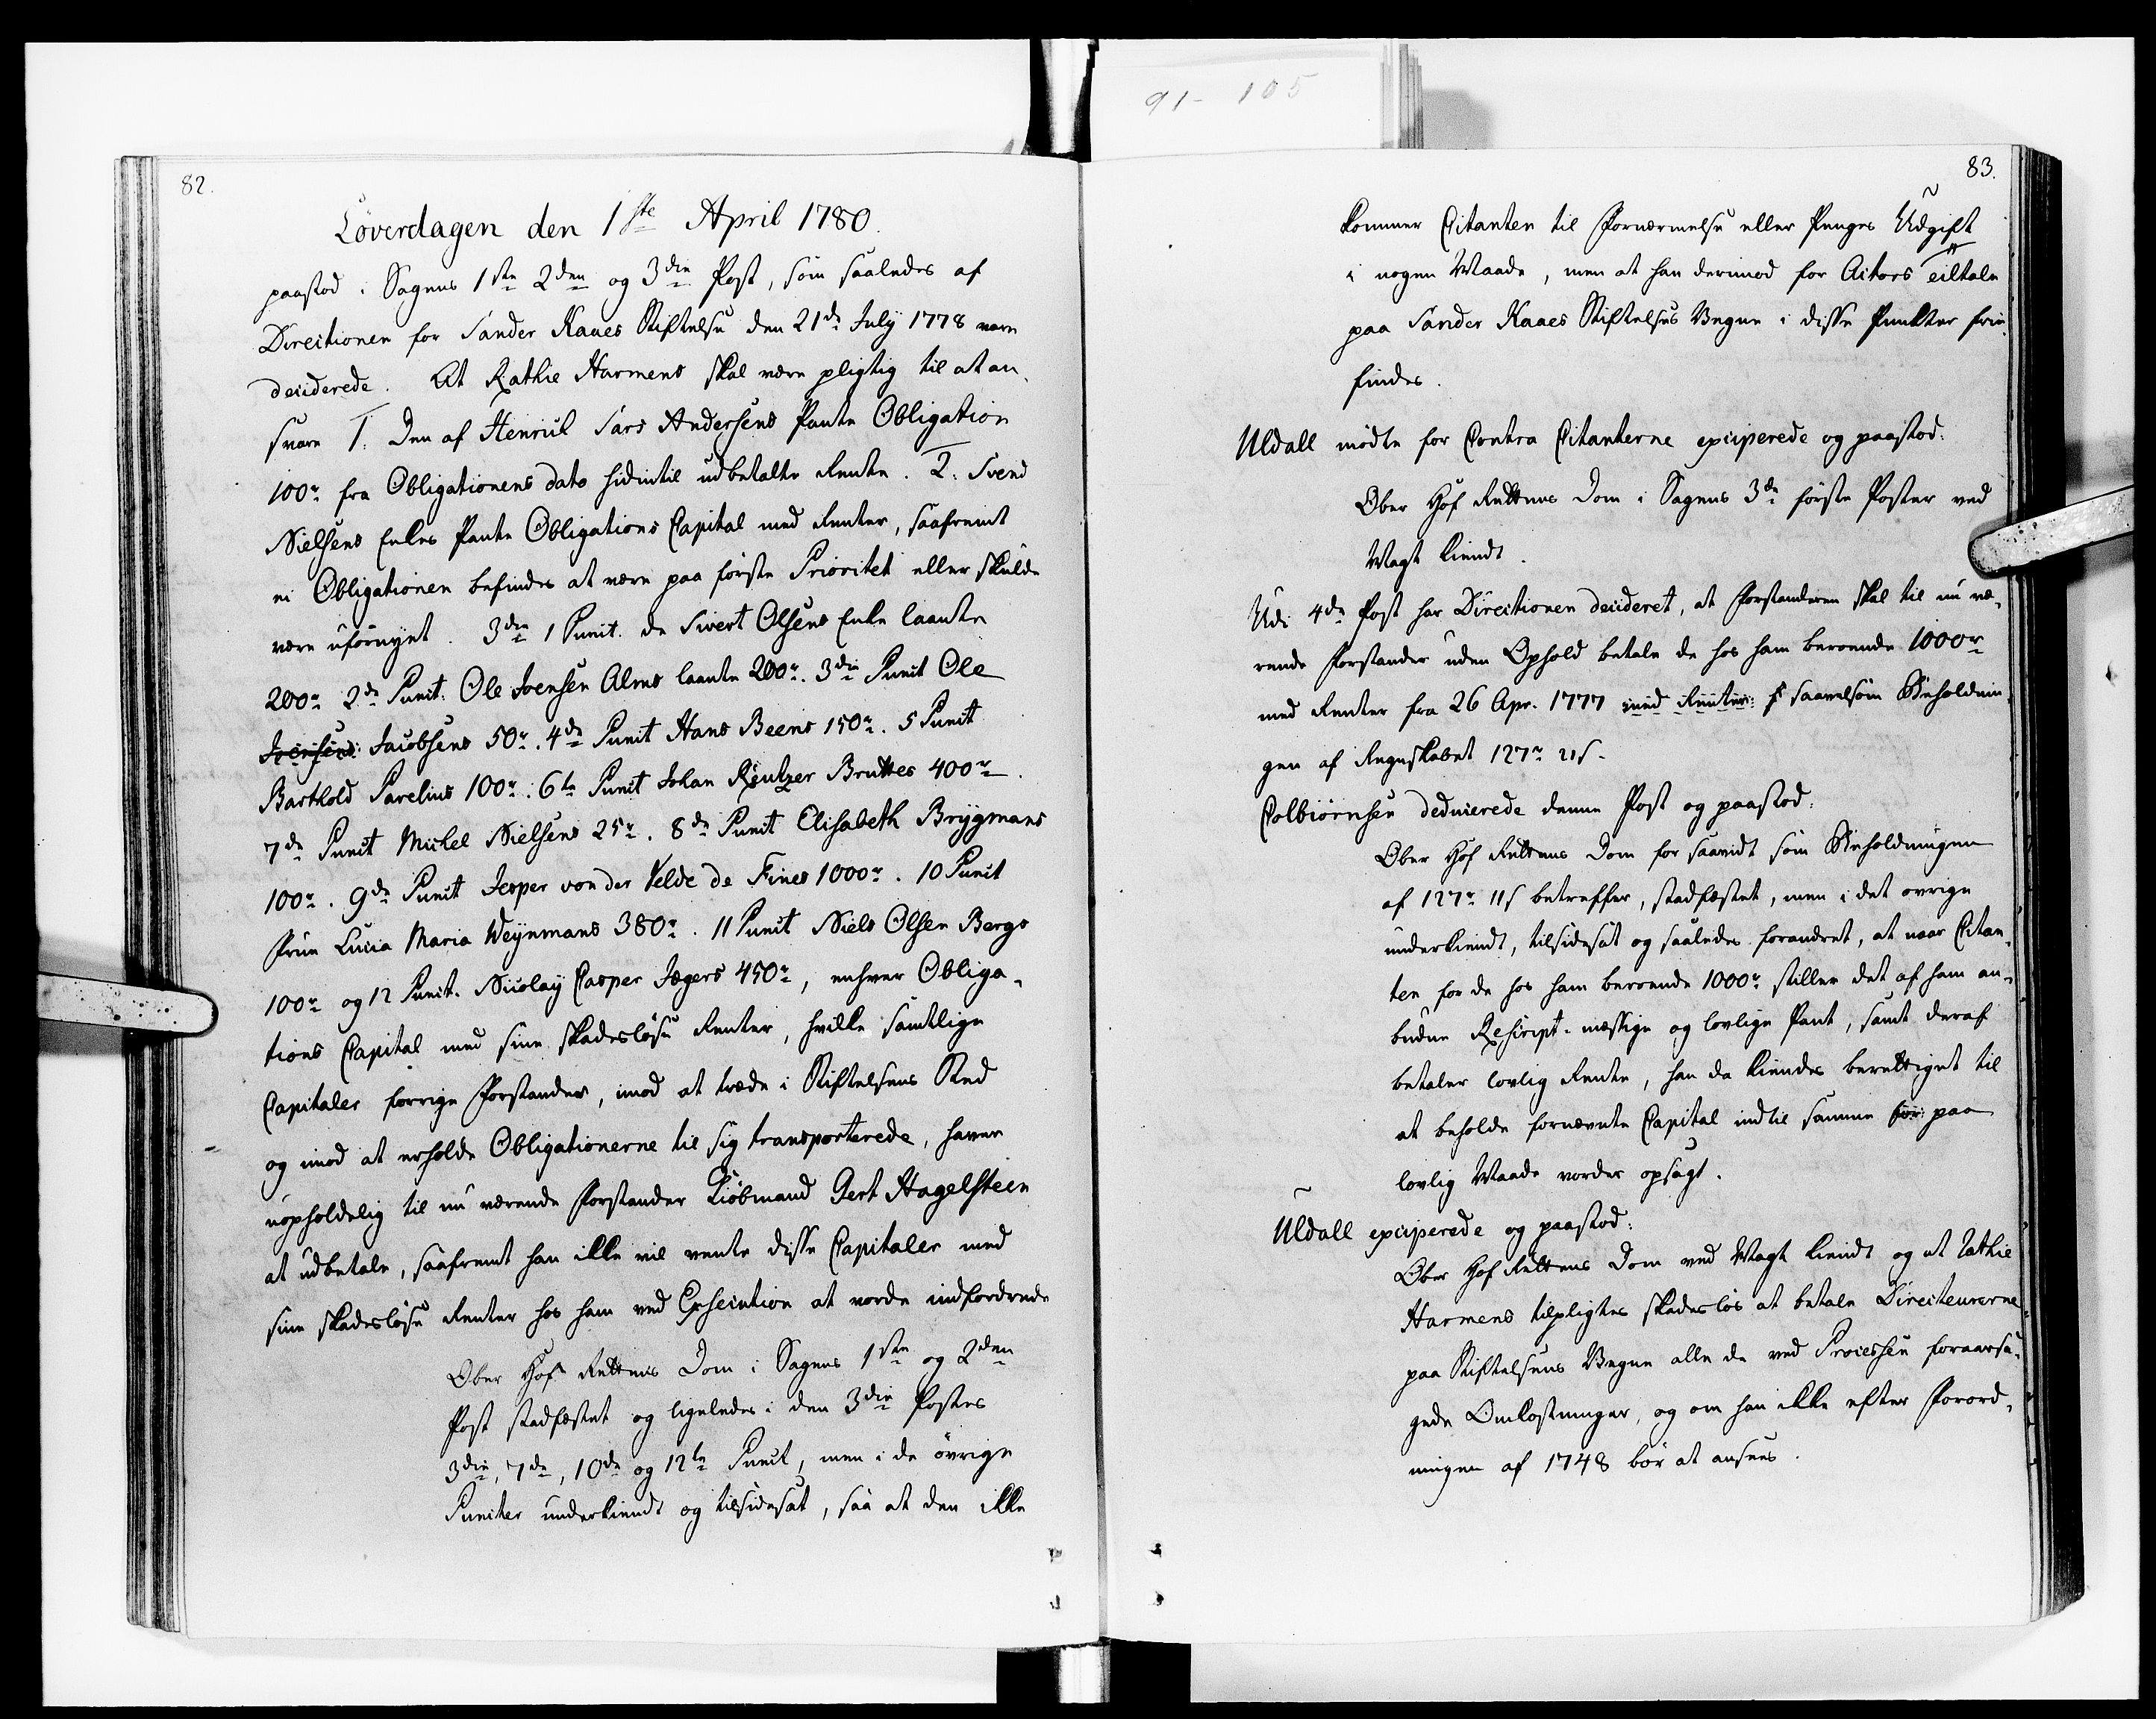 91-105
82.
Löverdagen den 1ste April 1780.
paastod i Sagens 1ste 2den og 3die Post, som saaledes af
Directionen for Sander Kaaes Stiftelse den 21de July 1778 vare
deciderede. At Rathie Harmens skal være pligtig til at an-
svare 1. Den af Henrick Lars Andersens Pante Obligation
100r fra Obligationens dato hidindtil udbetalte Rente. 2. Svend
Nielsens Enkes Pante Obligations Capital med Renter, saafremt
ei Obligationen befindes at være paa første Prioritet eller skulde
være ufornyet. 3die 1 Punct. de Sivert Olsens Enke laante
200r 2de Punct. Ole Ivensen Alms laante 200r. 3die Punct Ole
Ivensens Jacobsens 50r. 4de Punct Hans Beens 150r. 5 Punct
Barthold Parelius 100r. 6te Punct Johan Reutzer Bruttes 400r.
7de Punct Michel Nielsens 25r. 8de Punct Elisabeth Brÿgmans
100r. 9de Punct Jesper von der Velde de Fines 1000r. 10 Punct
Frue Lucia Maria Weÿnmans 380r. 11 Punct Niels Olsen Bergs
100r og 12 Punct. Nicolaÿ Casper Jægers 450r, enhver Obliga-
tions Capital med sine skadesløse Renter, hvilke samtlige
Capitaler forrige Forstander, imod at træde i Stiftelsens Sted
og imod at erholde Obligationerne til sig transporterede, haver
uopholdelig til nu værende Forstander Kiøbmand Gert Hagelsteen
at udbetale, saafremt han ikke vil vente disse Capitaler med
sine skadesløse Renter hos ham ved Execution at vorde indfordrede
Ober Hof Rettens Dom i Sagens 1ste og 2den
Post stadfæstet og ligeledes i den 3die Postes
3die, 7de, 10de og 12te Punct, men i de øvrige
Puncter underkiendt og tilsidesat, saa at den ikke
83.
kommer Citanten til Fornærmelse eller Penges Udgift
i nogen Maade, men at han derimod for Actors Tiltale
paa Sander Kaaes Stiftelses Vegne i disse Punkter frie
findes.
Uldall mødte for Contra Citanterne exciperede og paastod:
Ober Hof Rettens Dom i Sagens 3de første Poster ved
Magt kiendt.
Udi 4de Post har Directionen decideret, at Forstanderen skal til nu væ-
rende Forstander uden Ophold betale de hos ham beroende 1000r
med Renter fra 26 Apr. 1777 med Renter saavelsom Beholdnin
gen af Regnskabet 127r 11s.
Colbiørnsen deducerede denne Post og paastod:
Ober Hof Rettens Dom for saavidt som Beholdningen
af 127r 11s betreffer, stadfæstet, men i det øvrige
underkiendt, tilsidesat og saaledes forandret, at naar Citan-
ten for de hos ham beroende 1000r stiller det af ham an-
budne Rescript-mæssige og lovlige Pant, samt deraf
betaler lovlig Rente, han da kiendes berettiget til
at beholde fornævnte Capital indtil samme for paa
lovlig Maade vorder opsagt.
Uldall exciperede og paastod:
Ober Hof Rettens Dom ved Magt kiendt og at Rathie
Harmens tilpligtes skadesløs at betale Directeurerne
paa Stiftelsens Vegne alle de ved Processen foraarsa-
gede Omkostninger, og om han ikke efter Forord-
ningen af 1748 bør at ansees.